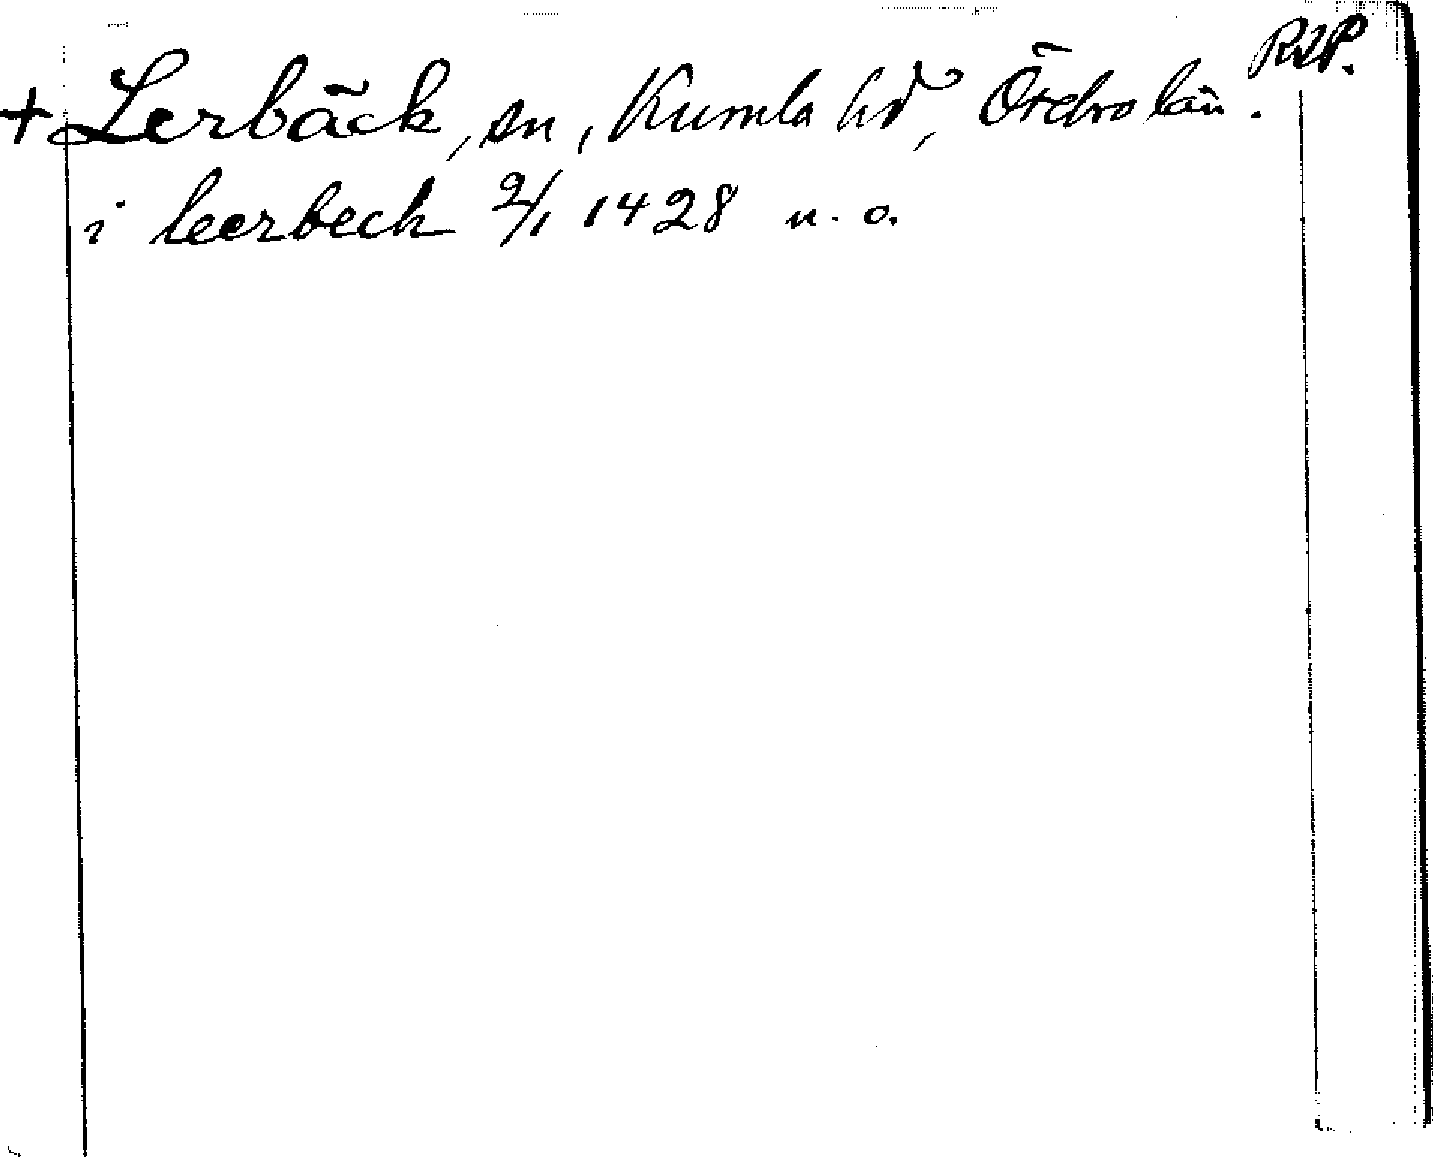 RAP.
+ Lerbäck, sn, Kumla hd, Örebro län.
i leerbeck 9/1 1428 u. o.